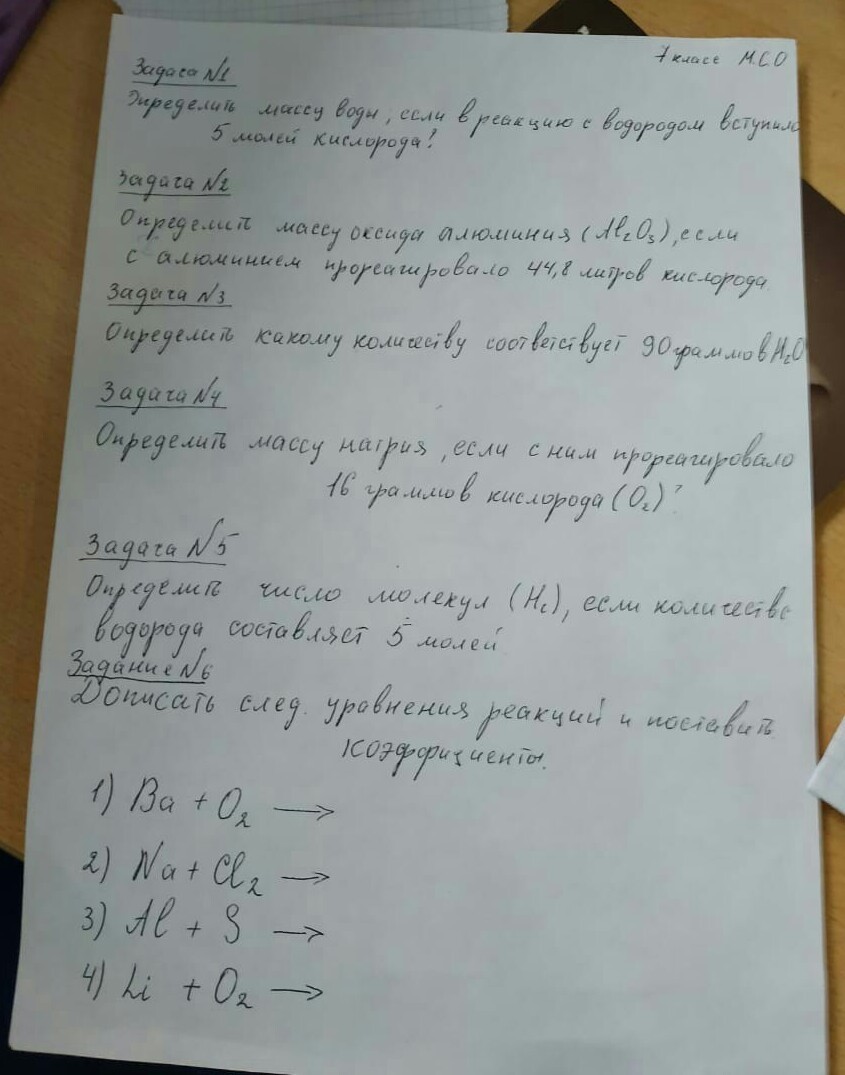 7 классе М.С.О
Задача N1
Определить массу воды, если в реакцию с водородом вступило
5 молей кислорода!
Задача N2
Определить массу оксида алюминия (Al₂O₃), если
с алюминием прореагировало 44,8 литров кислорода
Задача N3
Определить какому количеству соответствует 90 граммов H₂O
Задача N4
Определить массу натрия, если с ним прореагировало
16 граммов кислорода (O₂)?
Задача N5
Определить число молекул (H₂), если количество
водорода составляет 5 молей
Задание N6
Дописать след. уравнения реакций и поставить
коэффициенты.
1) Ba + O₂ →
2) Na + Cl₂ →
3) Al + S →
4) Li + O₂ →